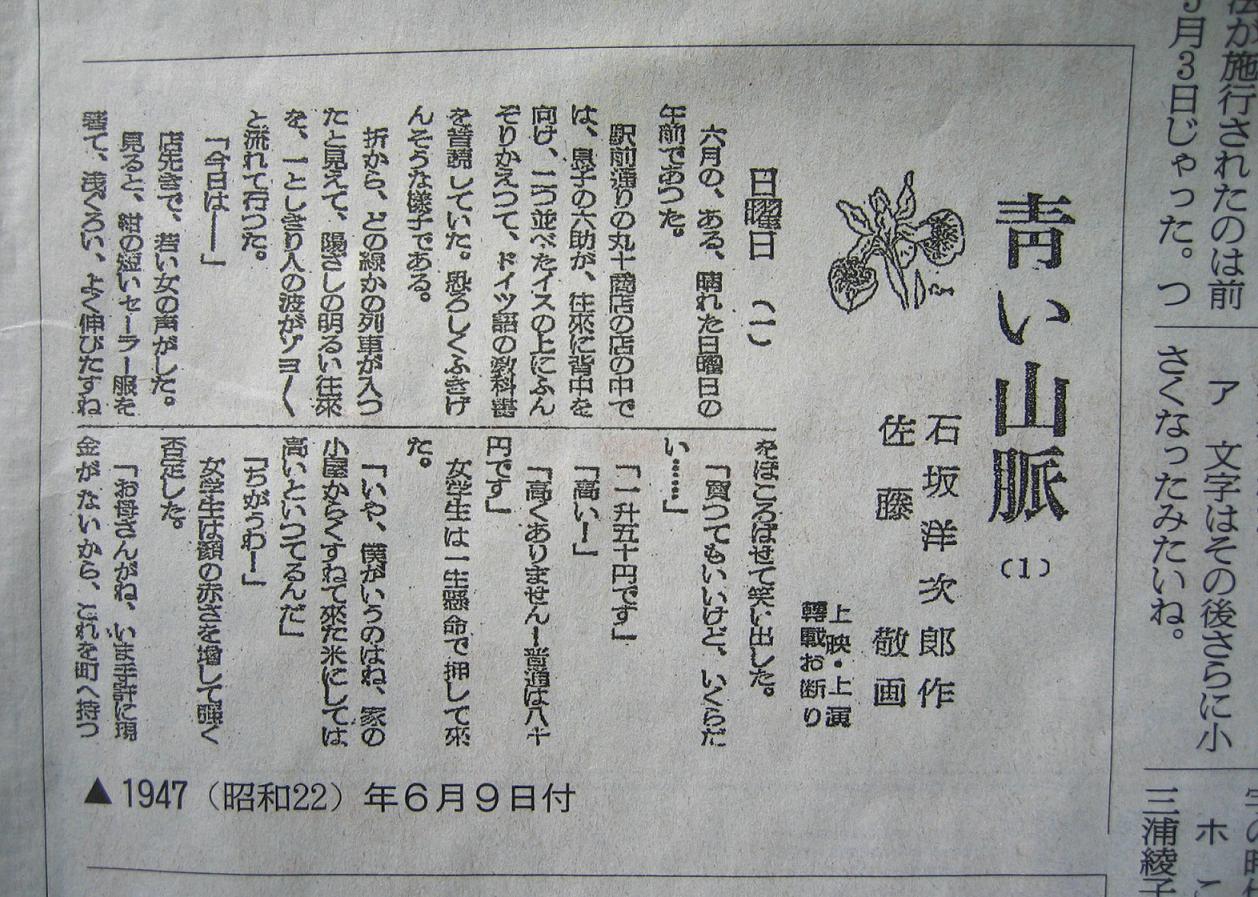 法が施行されたのは前
5月3日じゃった。つ
ア 文字はその後さらに小
さくなったみたいね。
ホ こ
三浦綾子
靑い山脈(1)
石坂洋次郎作
佐藤敬画
上映・上演
轉載お断り
日曜日 (一)
六月の、ある、晴れた日曜日の
午前であつた。
駅前通りの丸十商店の店の中で
は、息子の六助が、往來に背中を
向け、二つ並べたイスの上にふん
ぞりかえつて、ドイツ語の教科書
を音読していた。恐ろしくふきげ
んそうな様子である。
折から、どの線かの列車が入つ
たと見えて、陽ざしの明るい往來
を、一としきり人の波がゾヨ〳〵
と流れて行つた。
「今日は――」
店先きで、若い女の声がした。
見ると、紺の短いセーラー服を
着て、浅ぐろい、よく伸びたすね
をほころばせて笑い出した。
「買つてもいいけど、いくらだ
い……」
「一升五十円です」
「高い！」
「高くありません！普通は八十
円です」
女学生は一生懸命で押して來
た。
「いや、僕がいうのはね、家の
小屋からくすねて來た米にしては
高いといつてるんだ」
「ちがうわ！」
女学生は顔の赤さを増して强く
否定した。
「お母さんがね、いま手許に現
金がないから、これを町へ持つ
▲1947(昭和22)年6月9日付